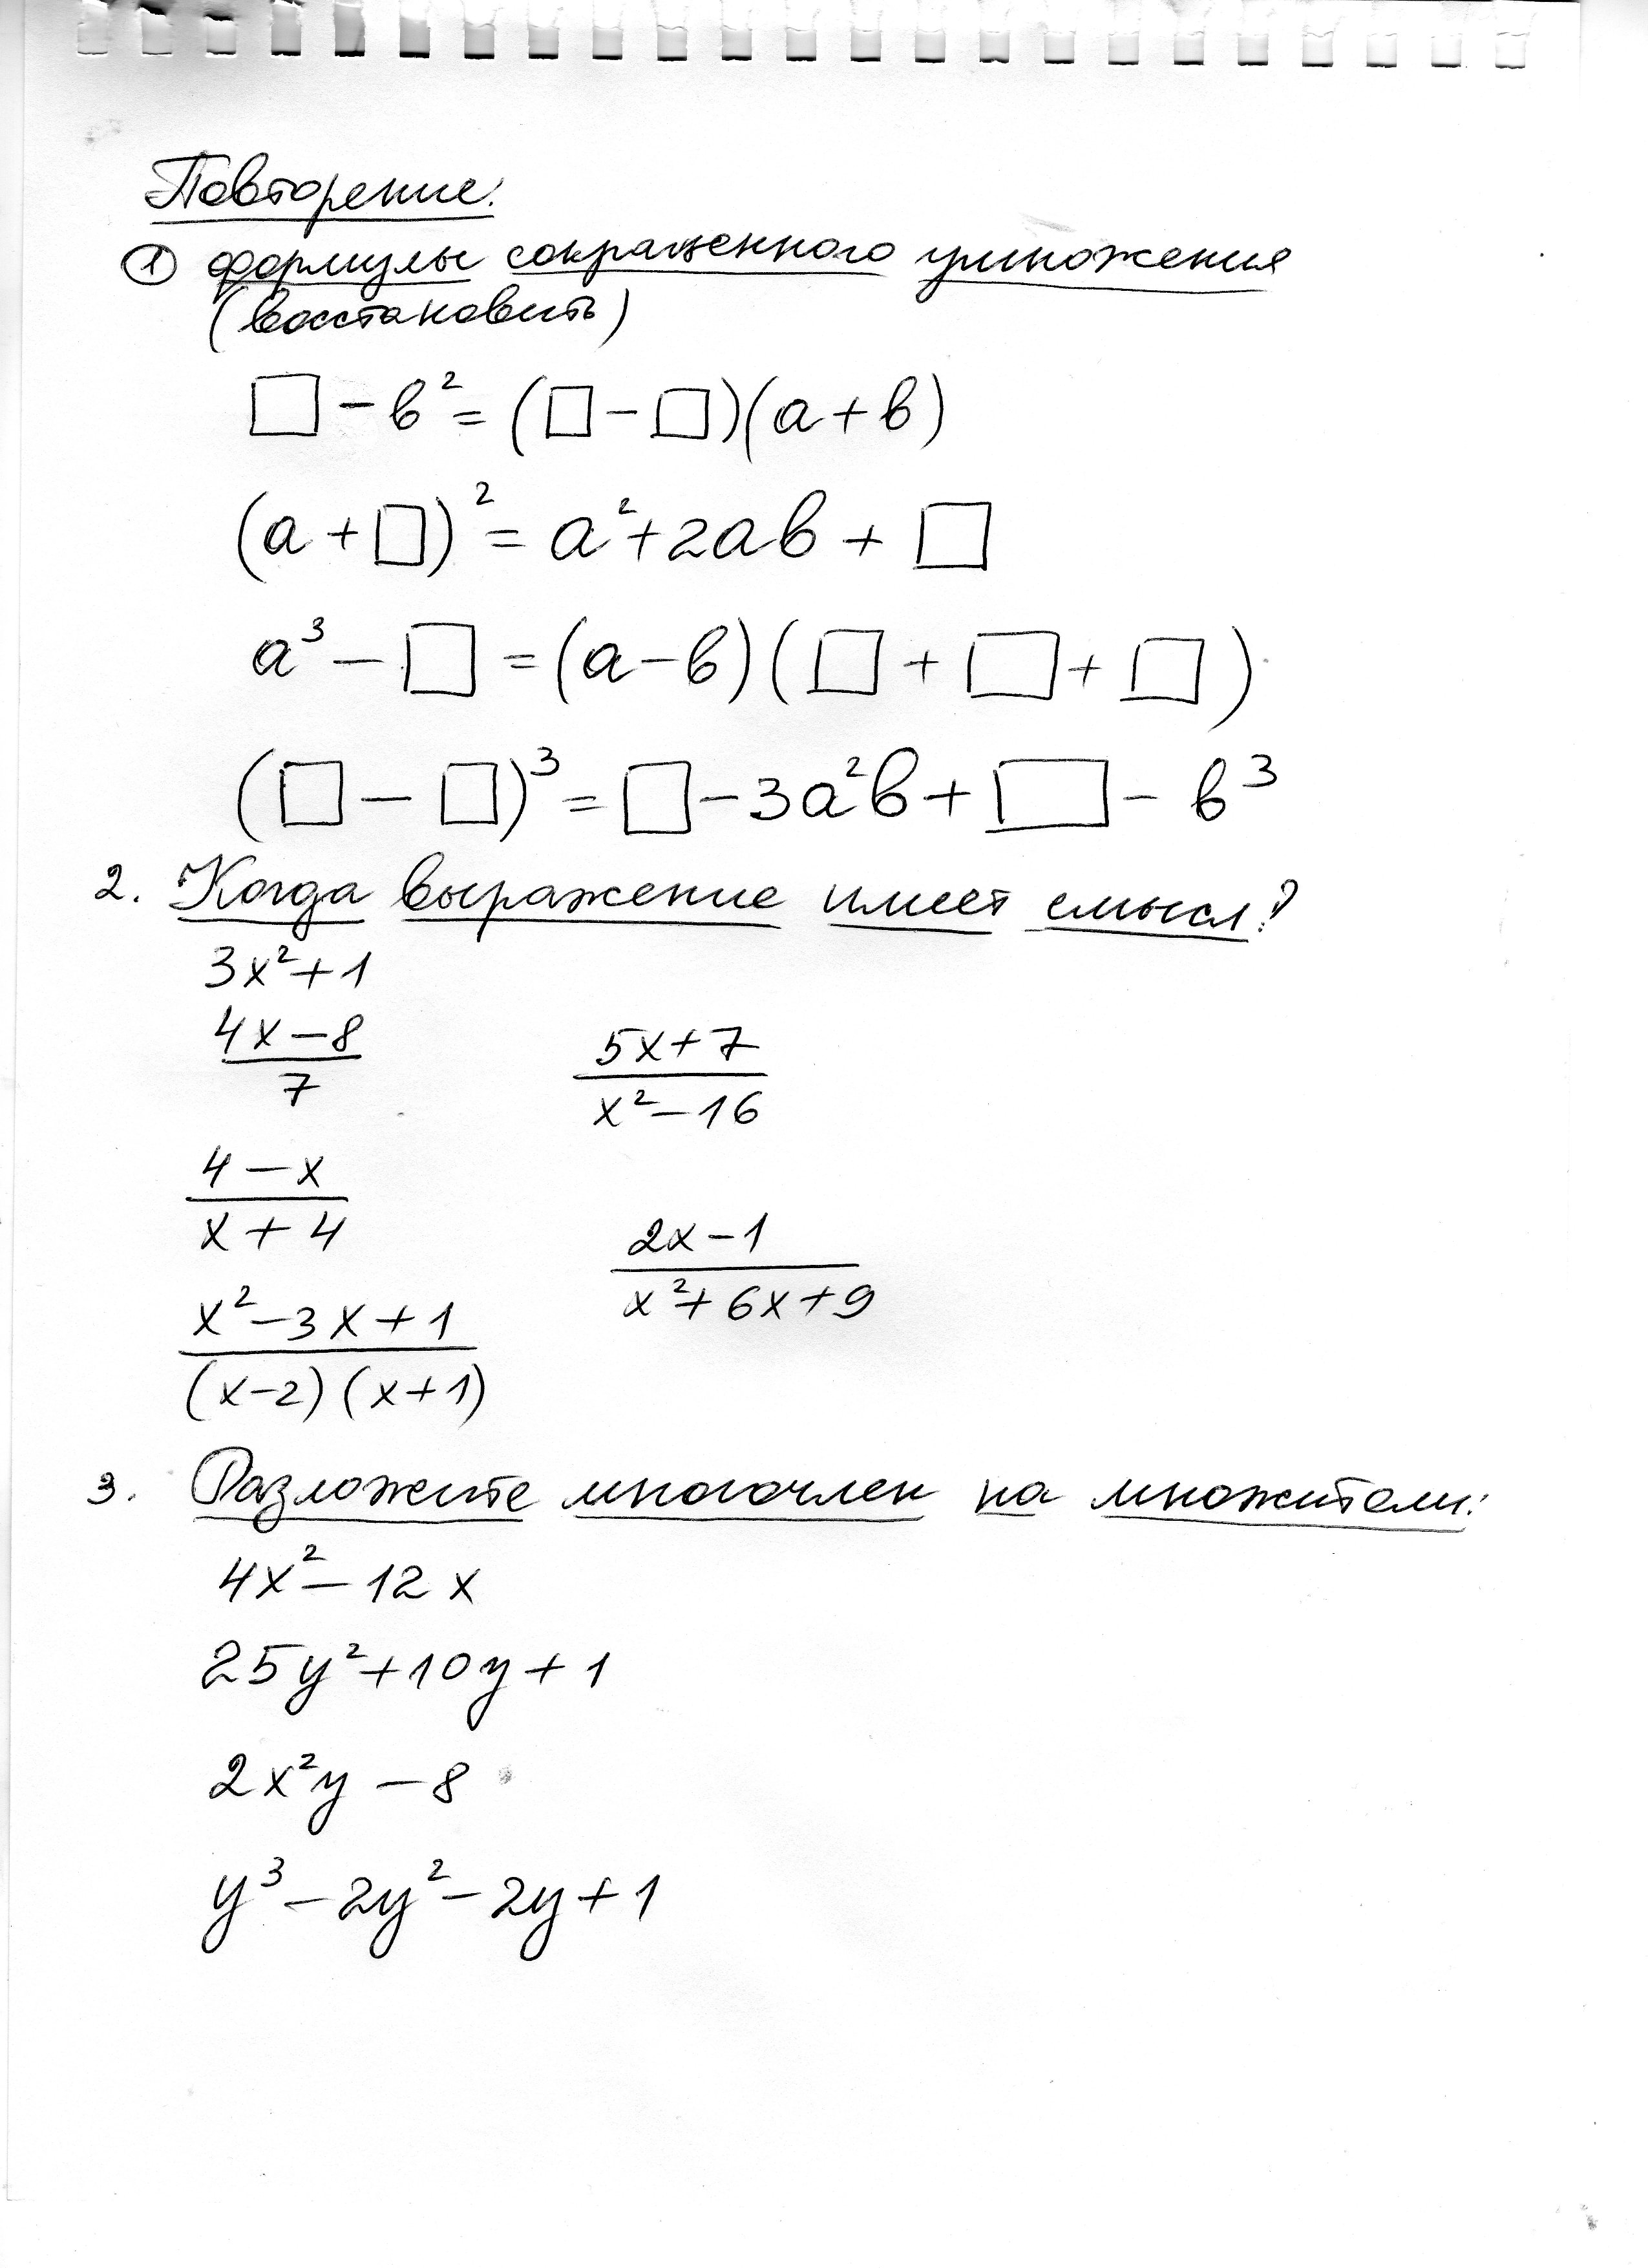 Повторение:
① формулы сокращенного умножения
(восстановить)
□ - в² = (□ - □)(а + в)
(а + □)² = а² + 2ав + □
а³ - □ = (а - в)(□ + □ + □)
(□ - □)³ = □ - 3а²в + □ - в³
2. Когда выражение имеет смысл?
3x² + 1
4x - 8
7
5x + 7
x² - 16
4 - x
x + 4
2x - 1
x² + 6x + 9
x² - 3x + 1
(x - 2)(x + 1)
3. Разложите многочлен на множители:
4x² - 12x
25y² + 10y + 1
2x²y - 8
y³ - 2y² - 2y + 1